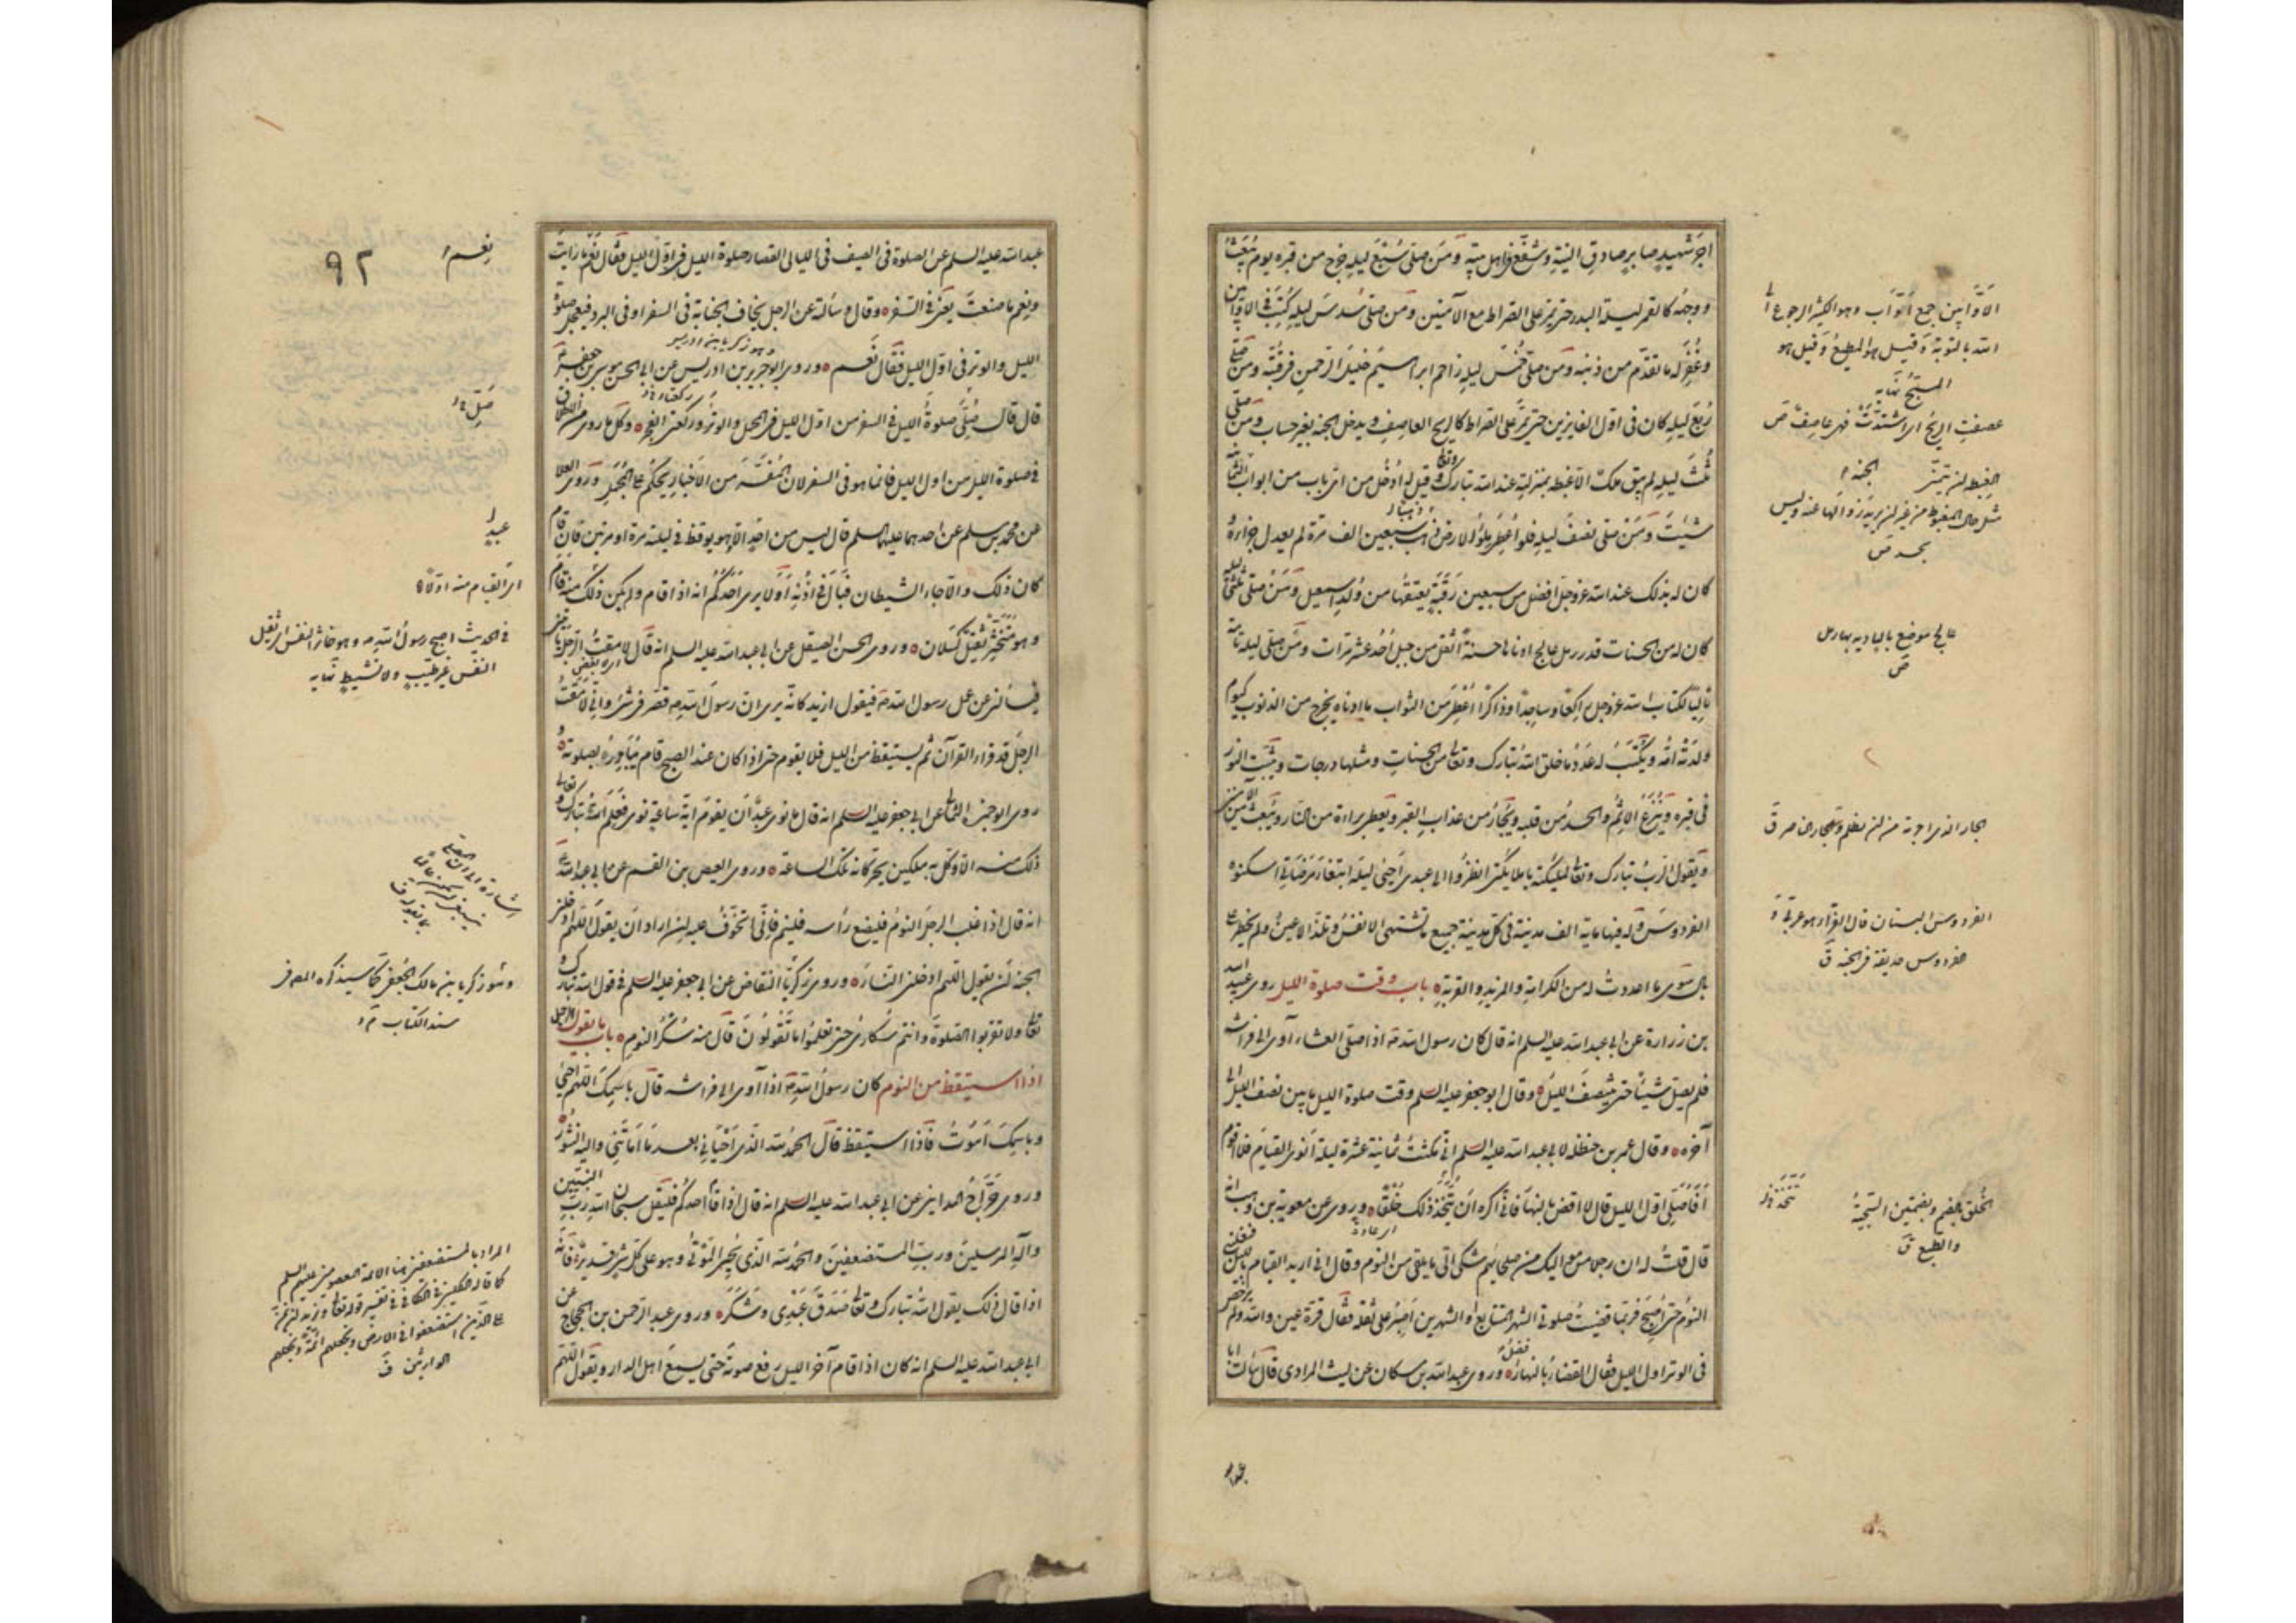 اجر شهيد صابر صادق النية وشفع في اهل بيته ومن صلى سبع ليلة خرج من قبره يوم يبعث
ووجهه كالقمر ليلة البدر حتى يمر على الصراط مع الآمنين ومن صلى سدس ليلة كتب في الاوابين
وغفر له ما تقدم من ذنبه ومن صلى خمس ليلة زاحم ابراهيم خليل الرحمن في قبته ومن صلى
ربع ليلة كان في اول الفايزين حتى يمر على الصراط كالريح العاصف ويدخل الجنة بغير حساب ومن صلى
ثلث ليلة لم يبق ملك الا غبطه بمنزلته عند الله تبارك وتعالى وقيل له ادخل من اي باب من ابواب الثمانية
شئت ومن صلى نصف ليلة فلو اعطي ملؤ الارض ذهبا سبعين الف مرة لم يعدل جزاءه
كان له بذلك عند الله عز وجل افضل من سبعين رقبة يعتقها من ولد اسمعيل ومن صلى ثلثي ليلة
كان له من الحسنات قدر رمل عالج ادناها حسنة اثقل من جبل احد عشر مرات ومن صلى ليلة تامة
تاليا لكتاب الله عز وجل راكعا وساجدا وذاكرا اعطي من الثواب ما ادناه يخرج من الذنوب كيوم
ولدته امه ويكتب له عدد ما خلق الله تبارك وتعالى من الحسنات ومثلها درجات ويثبت النور
في قبره وينزع الاثم والحسد من قلبه ويجار من عذاب القبر ويعطى براءة من النار ويبعث من الآمنين
ويقول الرب تبارك وتعالى لملئكته يا ملائكتي انظروا الى عبدي احيى ليلة ابتغاء مرضاتي اسكنوه
الفردوس وله فيها ماية الف مدينة في كل مدينة جميع ما تشتهي الانفس وتلذ الاعين ولم يخطر على
بال سوى ما اعددت له من الكرامة والمزيد والقربة باب وقت صلوة الليل روى عبيد الله
بن زرارة عن ابي عبد الله عليه السلم انه قال كان رسول الله ص اذا صلى العشاء آوى الى فراشه
فلم يصل شيئا حتى ينتصف الليل وقال ابو جعفر عليه السلم وقت صلوة الليل ما بين نصف الليل الى
آخره وقال عمر بن حنظلة لابي عبد الله عليه السلم اني مكثت ثمانية عشرة ليلة انوي القيام فلا اقوم
افاصلي اول الليل قال لا اقض بالنهار فاني اكره ان يتخذ ذلك خلقا وروي عن معوية بن وهب انه
قال قلت له ان رجلا من مواليك من صلحائهم شكى الي ما يلقى من النوم وقال اني اريد القيام بالليل فيغلبني
النوم حتى اصبح فربما قضيت صلوتي الشهر المتتابع او الشهرين اصبر على ثقله فقال قرة عين والله ولم يرخص
في الوتر اول الليل فقال القضاء بالنهار افضل وروى عبد الله بن مسكان عن ليث المرادي قال سألت ابا
الاوابين جمع اواب وهو الكثير الرجوع الى
الله بالتوبة وقيل هو المطيع وقيل هو
المسبح نهاية
عصفت الريح اي اشتدت فهي عاصف ص
الجنة
الغبطة ان تتمنى
مثل حال المغبوط من غير ان يريد زوالها عنه وليس
بحسد ص
عالج موضع بالبادية بها رمل
ص
الفردوس البستان قال الفراء هو عربي و
الفردوس حديقة في الجنة ق
الخلق بالضم وبضمتين السجية
والطبع ق
٩٢
نعم
عبد الله عليه السلم عن الصلوة في الصيف في الليالي القصار صلوة الليل في اول الليل فقال نعم ما رايت
ونعم ما صنعت يعني في السفر وقال وسألته عن الرجل يخاف الجنابة في السفر او في البرد فيعجل صلوة
الليل والوتر في اول الليل فقال نعم وروى ابو جرير بن ادريس عن ابي الحسن موسى بن جعفر
وهو زكريا بن ادريس
قال قال صلي صلوة الليل في السفر من اول الليل في المحمل والوتر وركعتي الفجر وكل ما روي من الاطلاق
في صلوة الليل من اول الليل فانما هو في السفر لان المفسر من الاخبار يحكم على المجمل وروى العلا
عن محمد بن مسلم عن احدهما عليهما السلم قال ليس من احد الا وهو يوقظ في ليلته مرة او مرتين فان قام
كان ذلك والا جاء الشيطان فبال في اذنه او لا يرى احدكم انه اذا قام ولم يكن ذلك منه قام
وهو متخثر ثقيل كسلان وروى الحسن الصيقل عن ابي عبد الله عليه السلم انه قال لامقت الرجل
فيسألني عن عمل رسول الله ص فيقول ازيد كانه يرى ان رسول الله ص قصر في شيء واني لامقت
الرجل قد قراء القرآن ثم يستيقظ من الليل فلا يقوم حتى اذا كان عند الصبح قام يبادره بصلوته
روى ابو حمزة الثمالي عن ابي جعفر عليه السلم انه قال ما نوى عبد ان يقوم اية ساعة نوى فعلم الله تبارك وتعالى
ذلك منه الا وكل به ملكين يحركانه تلك الساعة وروى العيص بن القسم عن ابي عبد الله
انه قال اذا غلب الرجل النوم فليضع رأسه فلينم فاني اتخوف عليه ان اراد ان يقول اللهم ادخلني
الجنة ان يقول اللهم ادخلني النار وروى زكريا النقاض عن ابي جعفر عليه السلم في قول الله تبارك و
تعالى ولا تقربوا الصلوة وانتم سكارى حتى تعلموا ما تقولون قال منه سكر النوم باب ما يقول الرجل
اذا استيقظ من النوم كان رسول الله ص اذا آوى الى فراشه قال باسمك اللهم احيى
وباسمك اموت فاذا استيقظ قال الحمد لله الذي احياني بعد ما اماتني واليه النشور
وروى جراح المدايني عن ابي عبد الله عليه السلم انه قال اذا قام احدكم فليقل سبحان الله رب النبيين
وآله المرسلين ورب المستضعفين والحمد لله الذي يحيي الموتى وهو على كل شيء قدير فانه
اذا قال ذلك يقول الله تبارك وتعالى صدق عبدي وشكر وروى عبد الرحمن بن الحجاج عن
ابي عبد الله عليه السلم انه كان اذا قام آخر الليل رفع صوته حتى يسمع اهل الدار ويقول اللهم
صل
عبد
اي القيام منه اولا
في الحديث اصبح رسول الله ص وهو خاثر النفس اي ثقيل
النفس غير طيب ولا نشيط نهاية
وهو زكريا بن مالك الجعفي كما سيذكره المص في
سند الكتاب
المراد بالمستضعفين هنا الائمة المعصومين عليهم السلم
كما قاله الكليني في الكافي في تفسير قوله تعالى ونريد ان نمن
على الذين استضعفوا في الارض ونجعلهم ائمة ونجعلهم
الوارثين ق